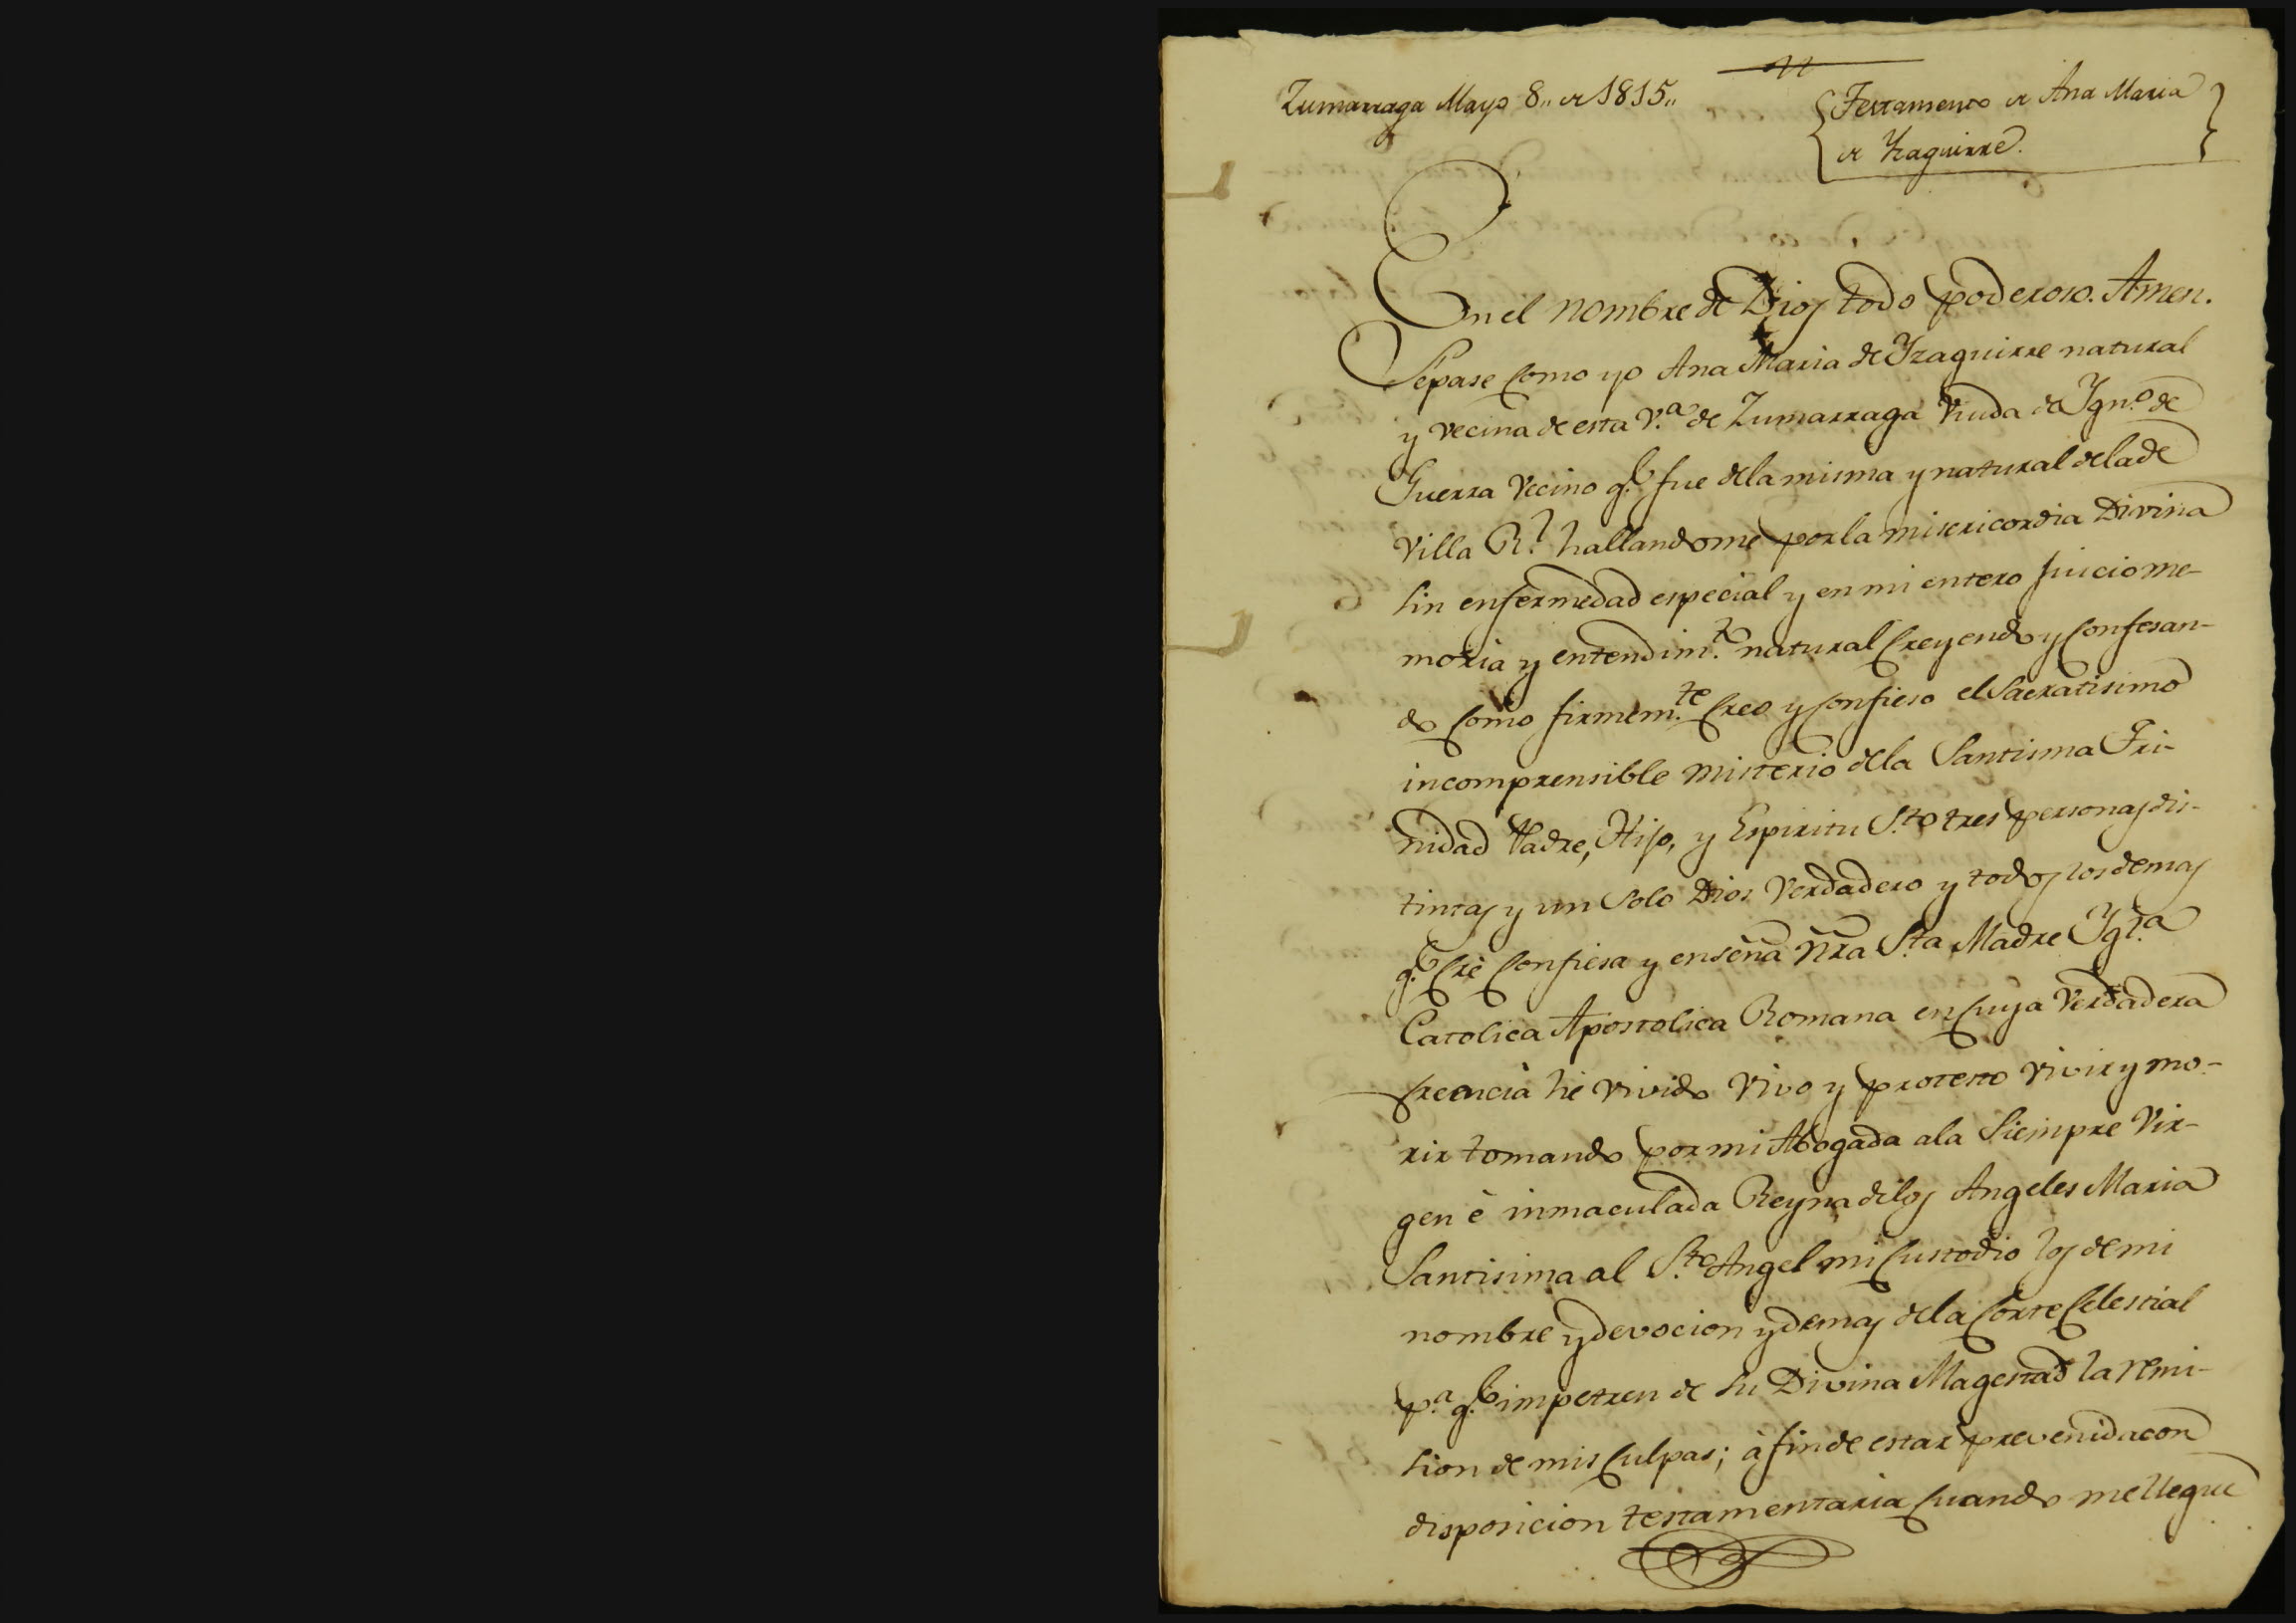 Zumarraga Mayo 8,, de 1815,,
Testamento de Ana Maria
de Yzaguirre.
En el nombre de Dios todo poderoso. Amen.
Sepase como yo Ana Maria de Yzaguirre natural
y vecina de esta V.ª de Zumarraga Viuda de Ygn.º de
Guerra Vecino q.e fue dela misma y natural dela de
Villa R.l hallandome por la misericordia Divina
sin enfermedad especial y en mi entero juicio me-
moria y entendim.to natural Creyendo y Confesan-
do Como firmem.te Creo y Confieso el Sacratisimo
incomprensible misterio dela Santisima Tri-
nidad Padre, Hijo, y Espiritu S.to tres personas dis-
tintas y un Solo Dios Verdadero y todos los demas
q.e Crè Confiesa y enseña Ñra S.ta Madre Ygl.ª
Catolica Apostolica Romana en Cuya Verdadera
Creencia hè vivido Vivo y protesto vivir y mo-
rir tomando por mi Abogada ala Siempre Vir-
gen è inmaculada Reyna delos Angeles Maria
Santisima al S.to Angel mi Custodio los de mi
nombre y devocion y demas dela Corte Celestial
p.ª q.e impetren de su Divina Magestad la remi-
sion de mis Culpas; à fin de estar prevenida con
disposicion testamentaria Cuando me llegue